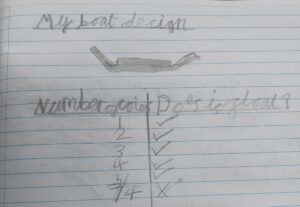 My boat design
Number of coins Does is float?
1 ✓
2 ✓
3 ✓
4 ✓
✗